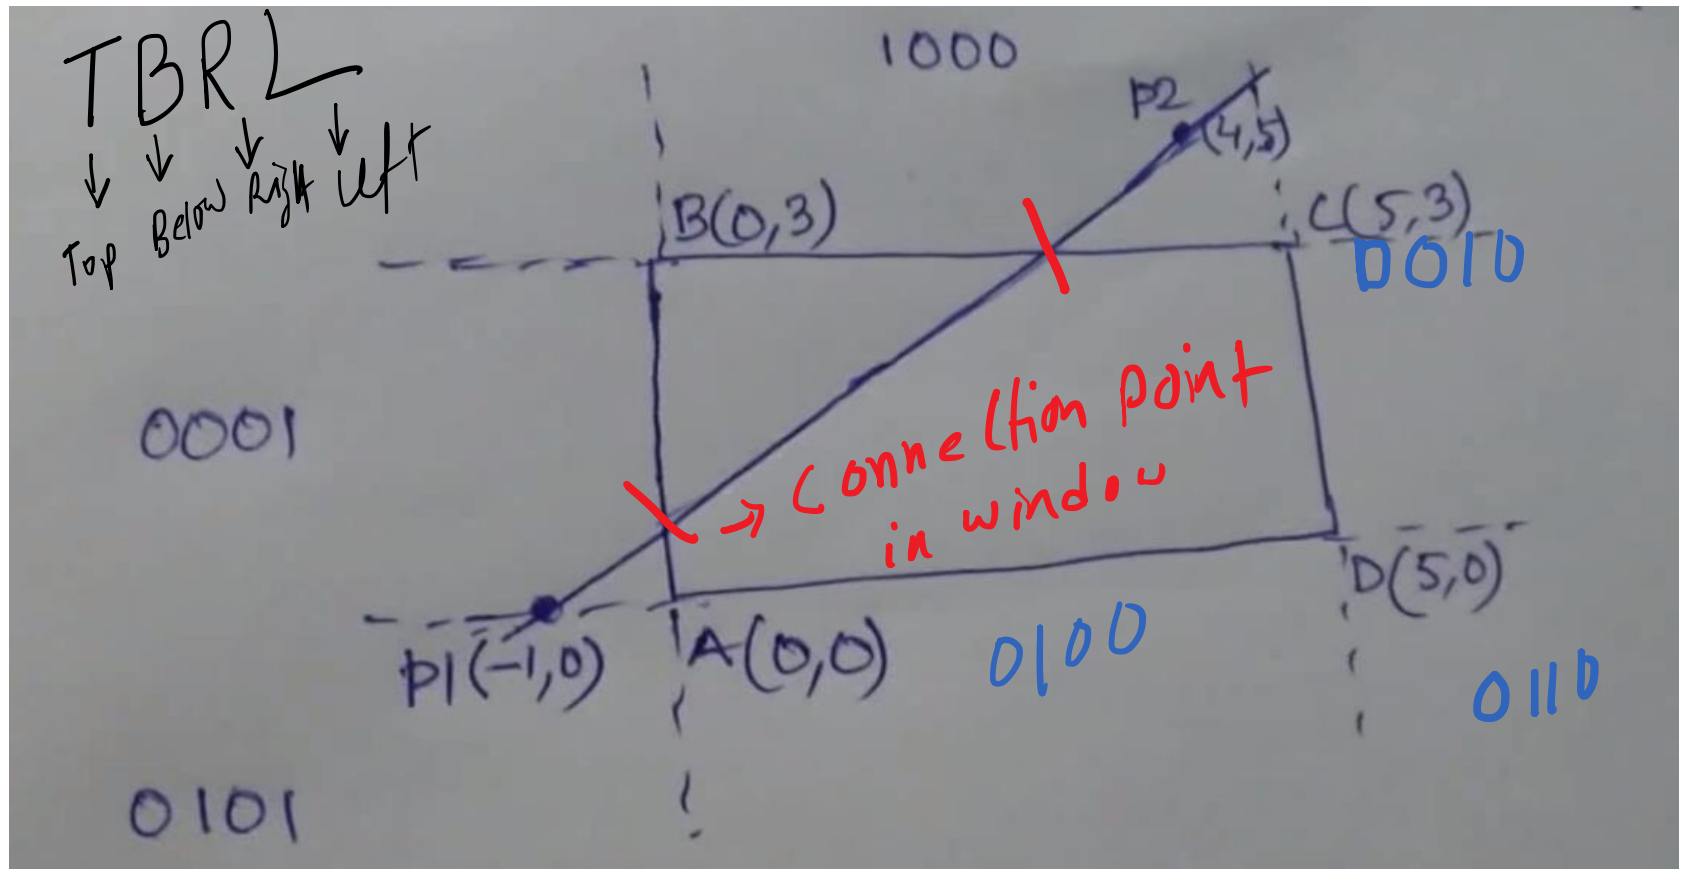 TBRL
Top Below Right Left
1000
P2
(4,5)
B(0,3)
C(5,3)
0010
0001
Connection point
in window
P1(-1,0)
A(0,0)
D(5,0)
0100
0110
0101